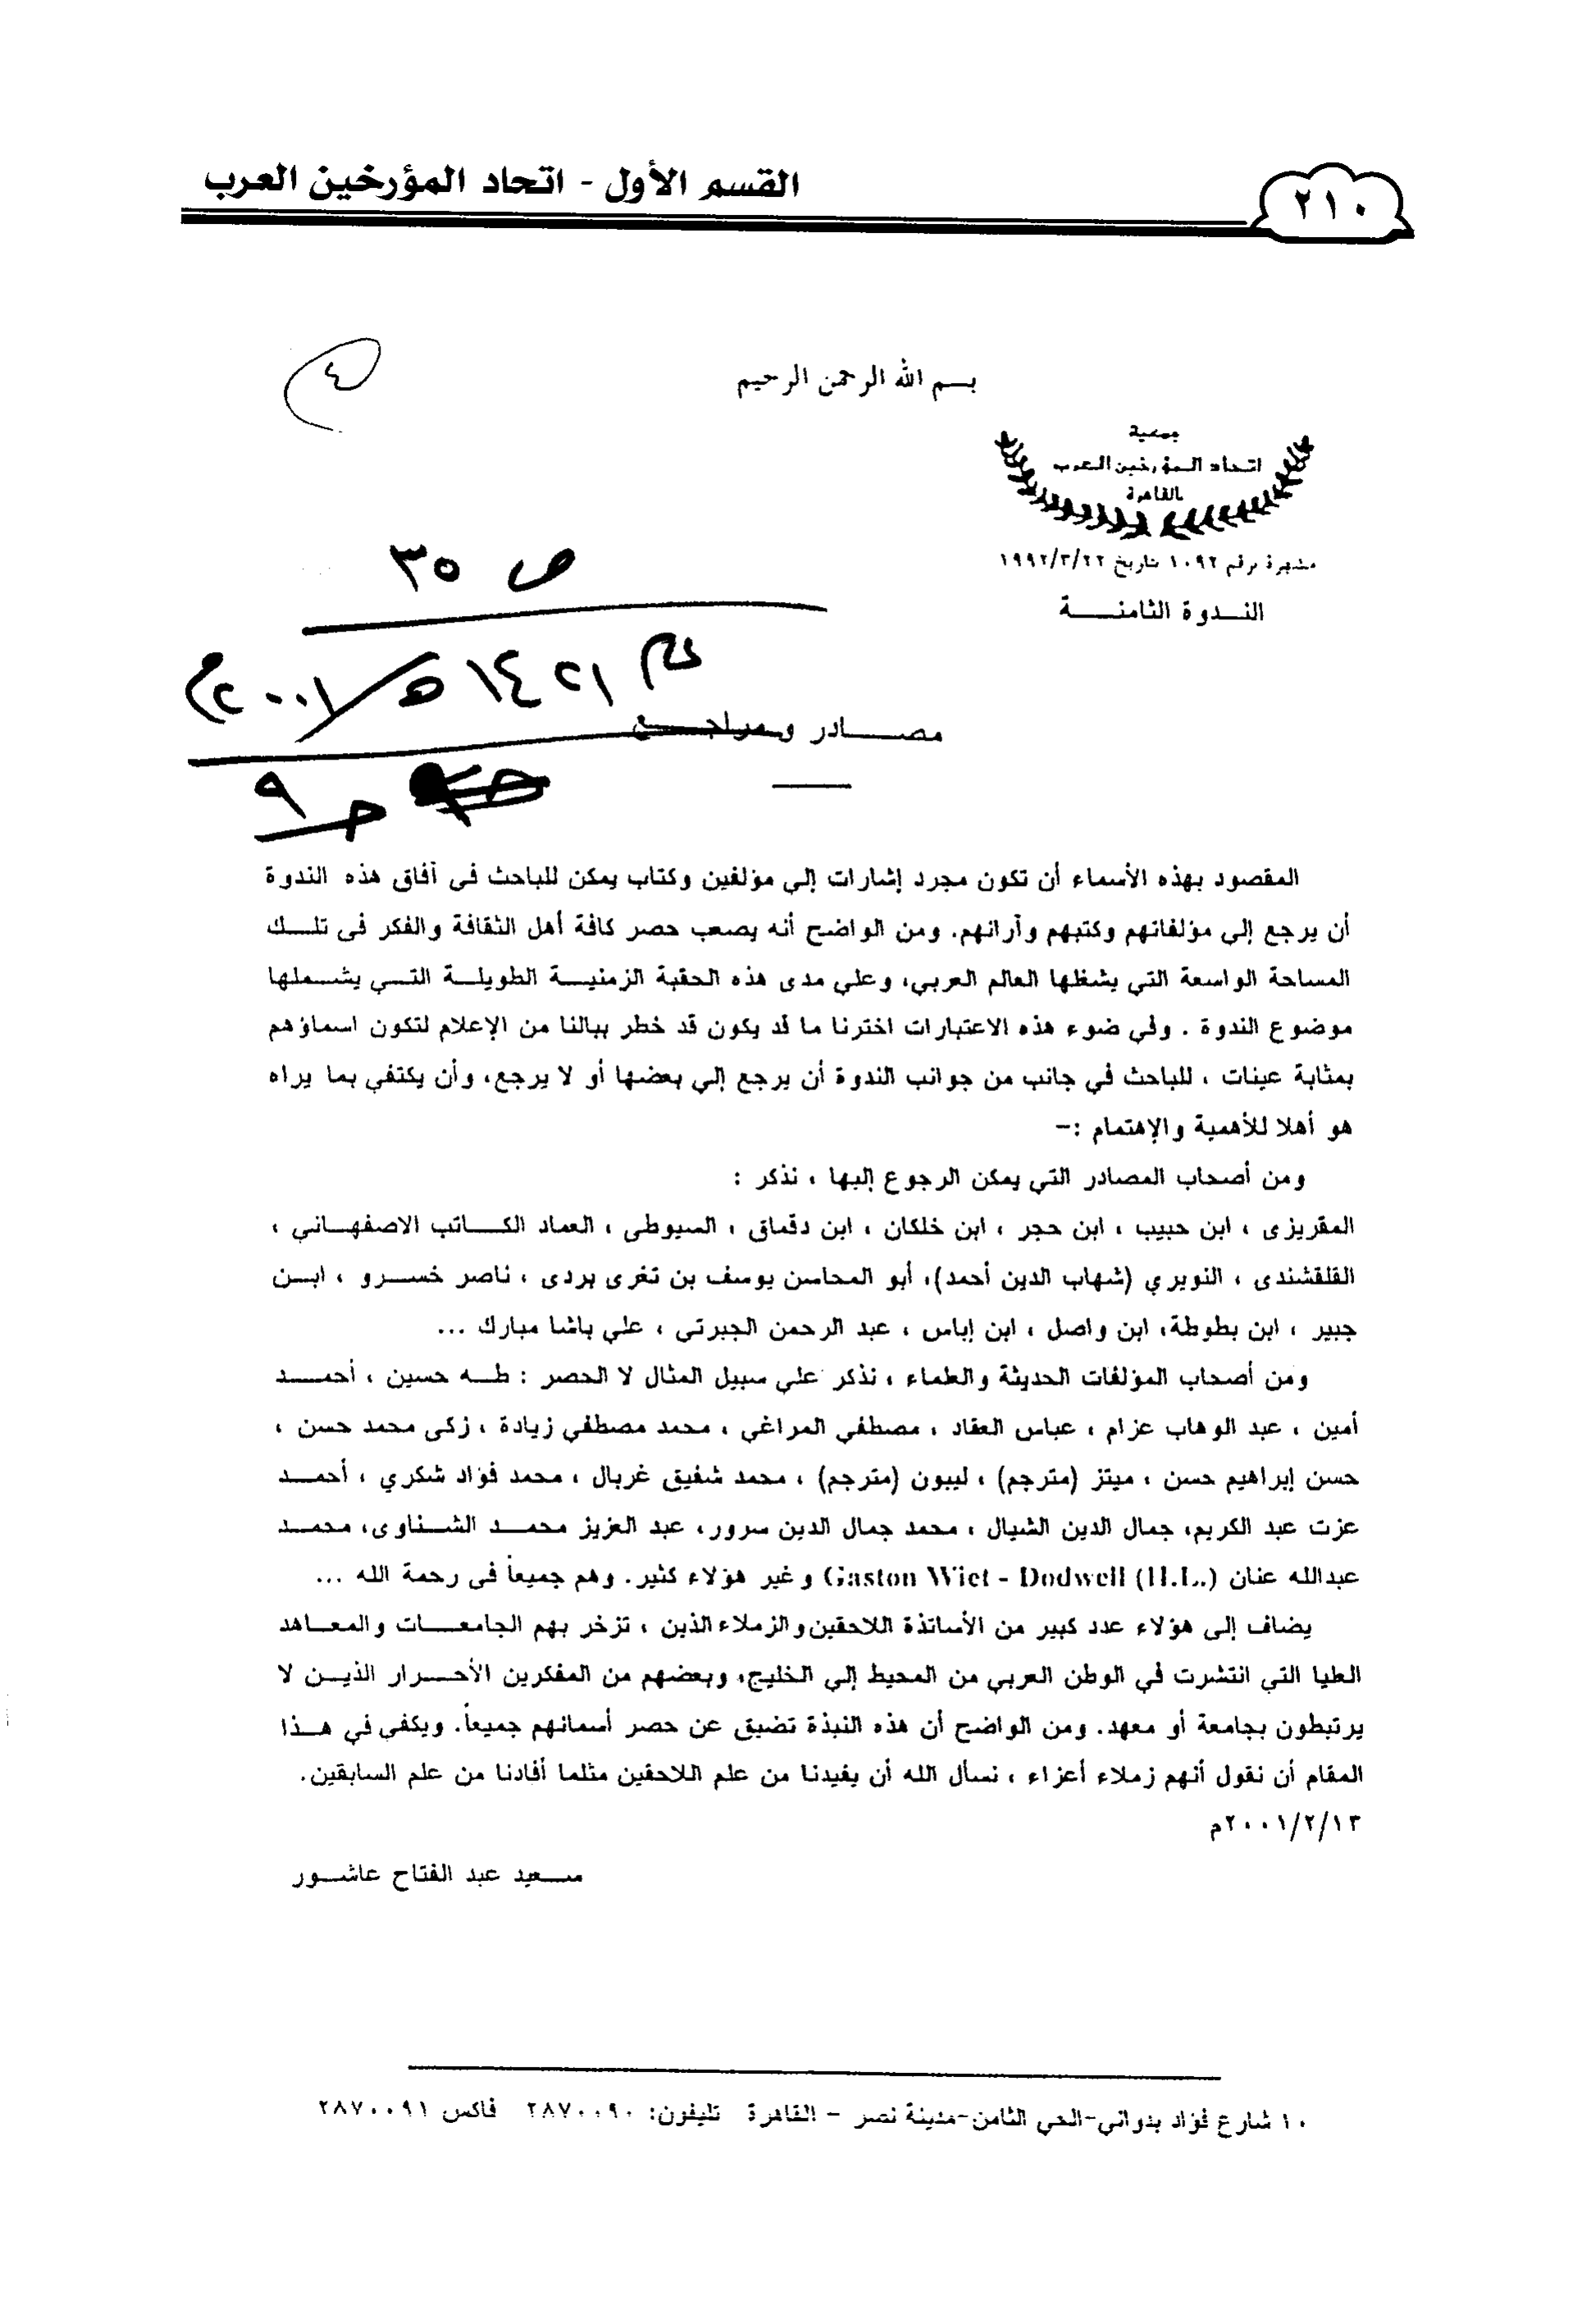 ٢١٠
القسم الأول - اتحاد المؤرخين العرب
٤
بسم الله الرحمن الرحيم
جمعية
اتحاد المؤرخين العرب
بالقاهرة
مشهرة برقم ١٠٩٢ بتاريخ ١٩٩٢/٣/٢٢
الندوة الثامنة
ص ٣٥
عام ١٤٢١هـ/٢٠٠١م
مصادر ومراجع
حـ ٩
المقصود بهذه الأسماء أن تكون مجرد إشارات إلي مؤلفين وكتاب يمكن للباحث فى آفاق هذه الندوة
أن يرجع إلى مؤلفاتهم وكتبهم وآرائهم. ومن الواضح أنه يصعب حصر كافة أهل الثقافة والفكر فى تلك
المساحة الواسعة التي يشغلها العالم العربي، وعلي مدى هذه الحقبة الزمنية الطويلة التي يشملها
موضوع الندوة . وفي ضوء هذه الاعتبارات اخترنا ما قد يكون قد خطر ببالنا من الإعلام لتكون اسماؤهم
بمثابة عينات ، للباحث في جانب من جوانب الندوة أن يرجع إلي بعضها أو لا يرجع، وأن يكتفي بما يراه
هو أهلا للأهمية والإهتمام :–
ومن أصحاب المصادر التي يمكن الرجوع إليها ، نذكر :
المقريزى ، ابن حبيب ، ابن حجر ، ابن خلكان ، ابن دقماق ، السيوطى ، العماد الكاتب الاصفهاني ،
القلقشندى ، النويري (شهاب الدين أحمد)، أبو المحاسن يوسف بن تغرى بردى ، ناصر خسرو ، ابن
جبير ، ابن بطوطة، ابن واصل ، ابن إياس ، عبد الرحمن الجبرتى ، علي باشا مبارك ...
ومن أصحاب المؤلفات الحديثة والعلماء ، نذكر علي سبيل المثال لا الحصر : طه حسين ، أحمد
أمين ، عبد الوهاب عزام ، عباس العقاد ، مصطفي المراغي ، محمد مصطفي زيادة ، زكى محمد حسن ،
حسن إبراهيم حسن ، ميتز (مترجم) ، ليبون (مترجم) ، محمد شفيق غربال ، محمد فؤاد شكري ، أحمد
عزت عبد الكريم، جمال الدين الشيال ، محمد جمال الدين سرور، عبد العزيز محمد الشناوى، محمد
عبدالله عنان Gaston Wiet - Dodwell (H.L..) وغير هؤلاء كثير. وهم جميعاً فى رحمة الله ...
يضاف إلى هؤلاء عدد كبير من الأساتذة اللاحقين والزملاء الذين ، تزخر بهم الجامعات والمعاهد
العليا التي انتشرت في الوطن العربي من المحيط إلي الخليج، وبعضهم من المفكرين الأحرار الذين لا
يرتبطون بجامعة أو معهد. ومن الواضح أن هذه النبذة تضيق عن حصر أسمائهم جميعاً. ويكفى في هذا
المقام أن نقول أنهم زملاء أعزاء ، نسأل الله أن يفيدنا من علم اللاحقين مثلما أفادنا من علم السابقين.
٢٠٠١/٢/١٣م
سعيد عبد الفتاح عاشور
١٠ شارع فؤاد بدواني-الحي الثامن-مدينة نصر – القاهرة تليفون: ٢٨٧٠٠٩٠ فاكس ٢٨٧٠٠٩١